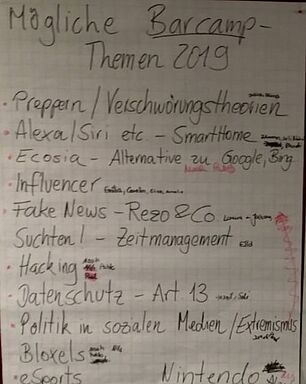 Mögliche Barcamp-
Themen 2019
· Preppern / Verschwörungstheorien
· Alexa/Siri etc. - SmartHome
· Ecosia - Alternative zu Google, Bing
· Influencer
· Fake News - Rezo & Co.
· Suchten! - Zeitmanagement
· Hacking
· Datenschutz - Art. 13
· Politik in sozialen Medien / Extremismus
· Bloxels
· eSports Nintendo